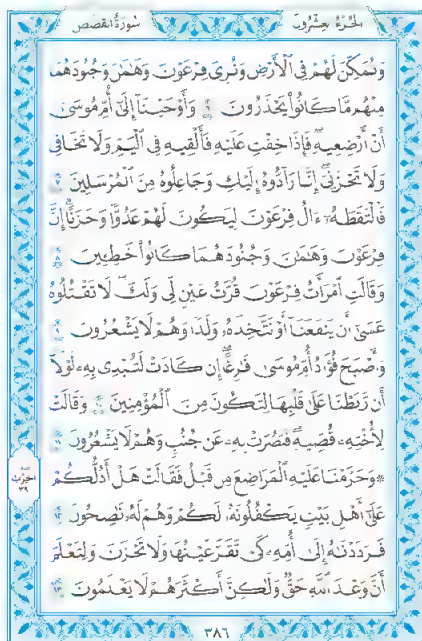 الجزء العشرون سورة القصص
وَنُمَكِّنَ لَهُمْ فِي الْأَرْضِ وَنُرِيَ فِرْعَوْنَ وَهَامَانَ وَجُنُودَهُمَا
مِنْهُم مَّا كَانُوا يَحْذَرُونَ ٦ وَأَوْحَيْنَا إِلَىٰ أُمِّ مُوسَىٰ
أَنْ أَرْضِعِيهِ فَإِذَا خِفْتِ عَلَيْهِ فَأَلْقِيهِ فِي الْيَمِّ وَلَا تَخَافِي
وَلَا تَحْزَنِي إِنَّا رَادُّوهُ إِلَيْكِ وَجَاعِلُوهُ مِنَ الْمُرْسَلِينَ ٧
فَالْتَقَطَهُ ءَالُ فِرْعَوْنَ لِيَكُونَ لَهُمْ عَدُوًّا وَحَزَنًا إِنَّ
فِرْعَوْنَ وَهَامَانَ وَجُنُودَهُمَا كَانُوا خَاطِئِينَ ٨
وَقَالَتِ امْرَأَتُ فِرْعَوْنَ قُرَّتُ عَيْنٍ لِّي وَلَكَ لَا تَقْتُلُوهُ
عَسَىٰ أَن يَنفَعَنَا أَوْ نَتَّخِذَهُ وَلَدًا وَهُمْ لَا يَشْعُرُونَ ٩
وَأَصْبَحَ فُؤَادُ أُمِّ مُوسَىٰ فَارِغًا إِن كَادَتْ لَتُبْدِي بِهِ لَوْلَا
أَن رَّبَطْنَا عَلَىٰ قَلْبِهَا لِتَكُونَ مِنَ الْمُؤْمِنِينَ ١٠ وَقَالَتْ
لِأُخْتِهِ قُصِّيهِ فَبَصُرَتْ بِهِ عَن جُنُبٍ وَهُمْ لَا يَشْعُرُونَ ١١
۞ وَحَرَّمْنَا عَلَيْهِ الْمَرَاضِعَ مِن قَبْلُ فَقَالَتْ هَلْ أَدُلُّكُمْ
عَلَىٰ أَهْلِ بَيْتٍ يَكْفُلُونَهُ لَكُمْ وَهُمْ لَهُ نَاصِحُونَ ١٢
فَرَدَدْنَاهُ إِلَىٰ أُمِّهِ كَيْ تَقَرَّ عَيْنُهَا وَلَا تَحْزَنَ وَلِتَعْلَمَ
أَنَّ وَعْدَ اللَّهِ حَقٌّ وَلَٰكِنَّ أَكْثَرَهُمْ لَا يَعْلَمُونَ ١٣
الحزب
٣٩
٣٨٦